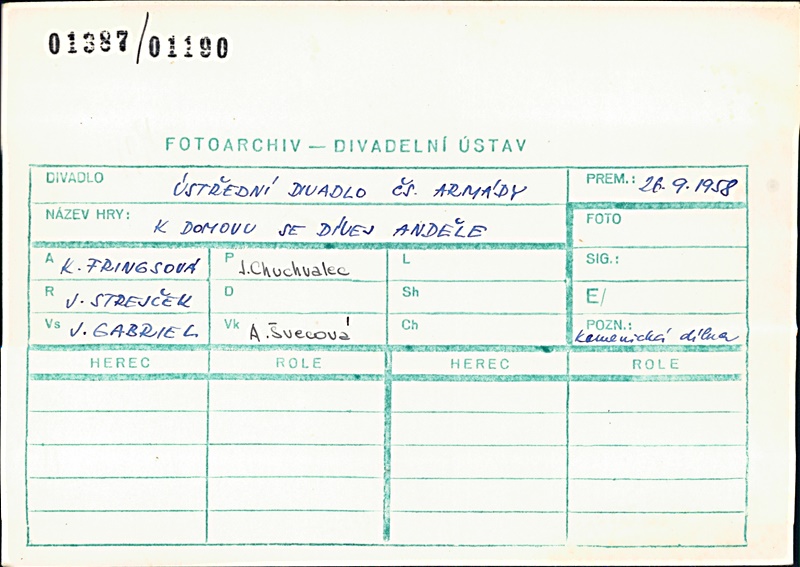 01387/01190
FOTOARCHIV — DIVADELNÍ ÚSTAV
DIVADLO ÚSTŘEDNÍ DIVADLO ČS. ARMÁDY PREM.: 26.9.1958
NÁZEV HRY: K DOMOVU SE DÍVEJ ANDĚLE FOTO
A K. FRINGSOVÁ P J. Chuchvalec L SIG.:
R J. STREJČEK D Sh E/
Vs J. GABRIEL Vk A. Švecová Ch POZN.: kamenická dílna
HEREC ROLE HEREC ROLE